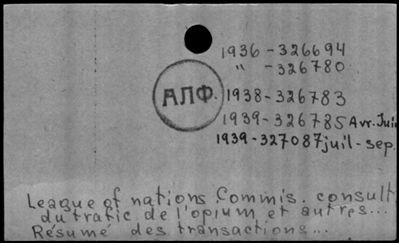 1936-326694
" -326780
АЛФ.
1938-326783
1939-326785 Avr. Juin
1939-327087 juil-sep.
League of nations Commis. consult
du trafic de l'opium et autres...
Résumé des transactions...